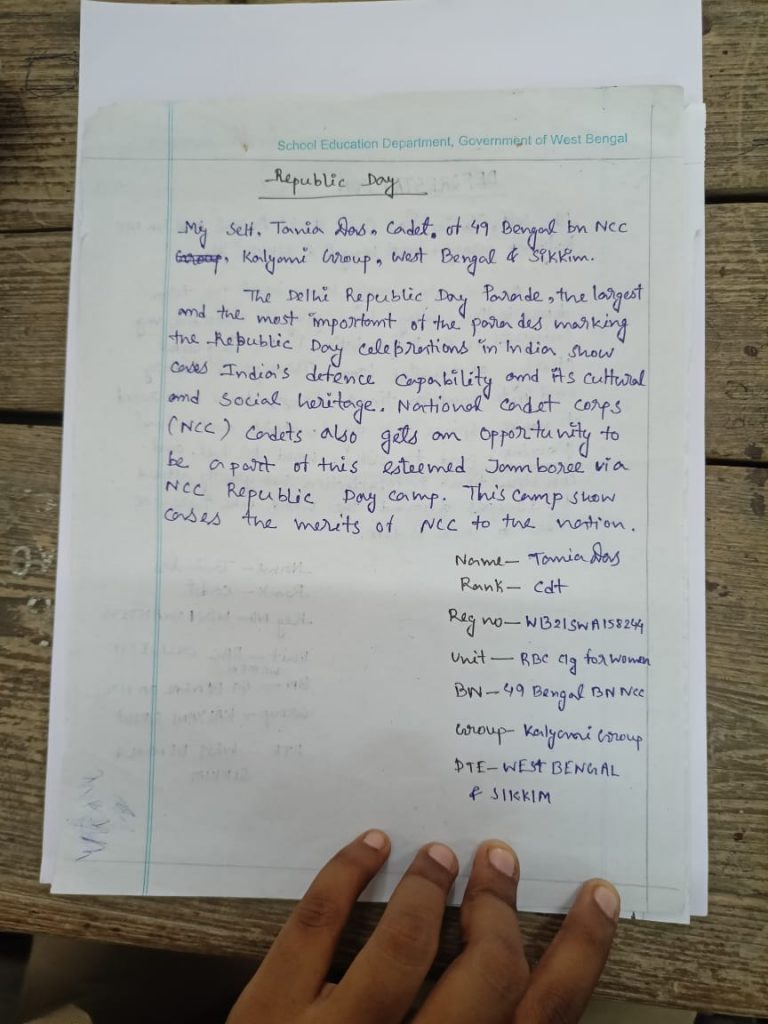 School Education Department, Government of West Bengal
Republic Day
My Self. Tania Das, Cadet, of 49 Bengal bn NCC
Kalyani Group, West Bengal & Sikkim.
The Delhi Republic Day Parade, the largest
and the most important of the parades marking
the Republic Day celebrations in India show
cases India's defence capability and its cultural
and social heritage. National cadet corps
(NCC) Cadets also gets an opportunity to
be a part of this esteemed Jamboree via
NCC Republic Day camp. This camp show
cases the merits of NCC to the nation.
Name— Tania Das
Rank— Cdt
Reg no— WB21SWA158244
Unit — RBC clg for women
BN—49 Bengal BN NCC
Group— Kalyani Group
DTE—WEST BENGAL
& SIKKIM